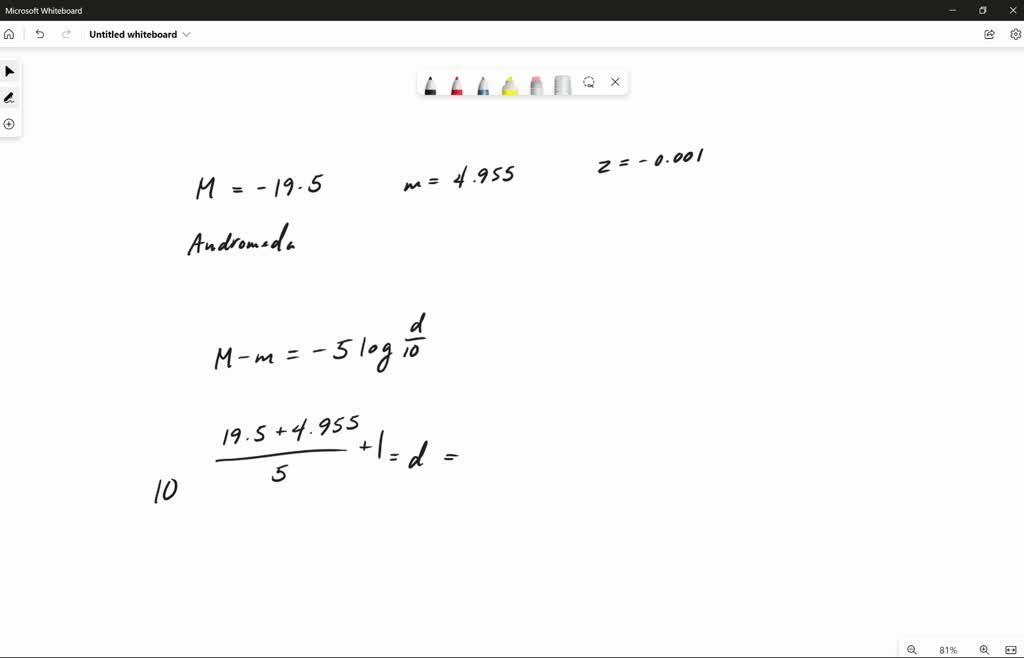 Microsoft Whiteboard
Untitled whiteboard
M = -19.5 m = 4.955 z = -0.001
Andromeda
M-m = -5 log d/10
10 (19.5+4.955)/5 +1 = d =
81%